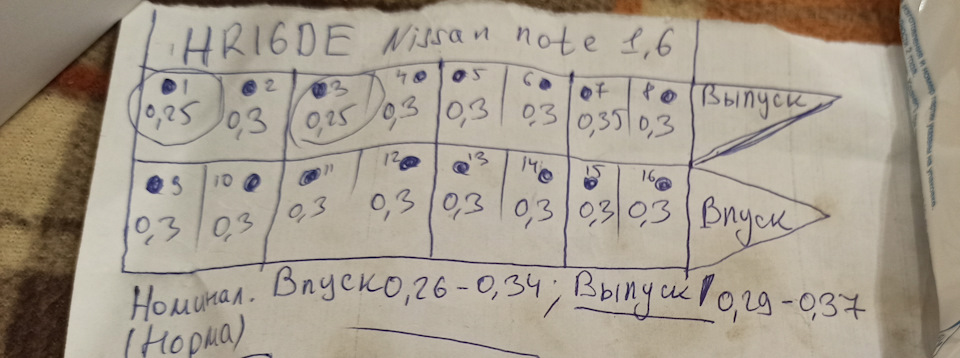 HR16DE Nissan note 1,6
1 2 3 4 5 6 7 8 Выпуск
0,25 0,3 0,25 0,3 0,3 0,3 0,35 0,3
9 10 11 12 13 14 15 16
0,3 0,3 0,3 0,3 0,3 0,3 0,3 0,3 Впуск
Номинал. Впуск 0,26-0,34; Выпуск 0,29-0,37
(Норма)